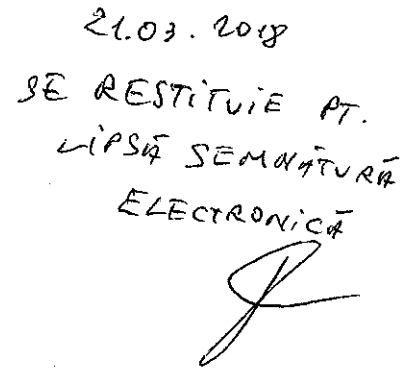 21.03.2018
SE RESTITUIE PT.
LIPSĂ SEMNĂTURĂ
ELECTRONICĂ